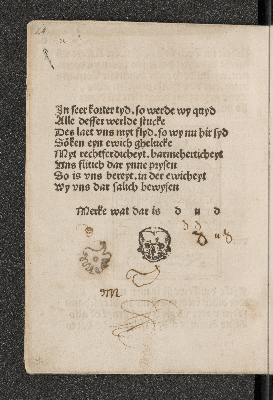 In seer korter tyd. so werde wy quyd
Alle desser werlde stucke
Des laet vns myt flyd. so wy nu hir syd
Söken eyn ewich ghelucke
Myt rechtferdicheyt. barmeherticheyt
Uns flitich dar ynne prysen
So is vns bereyt. in der ewicheyt
Wy vns dar salich bewysen
Merke wat dar is d u d
d u d
M